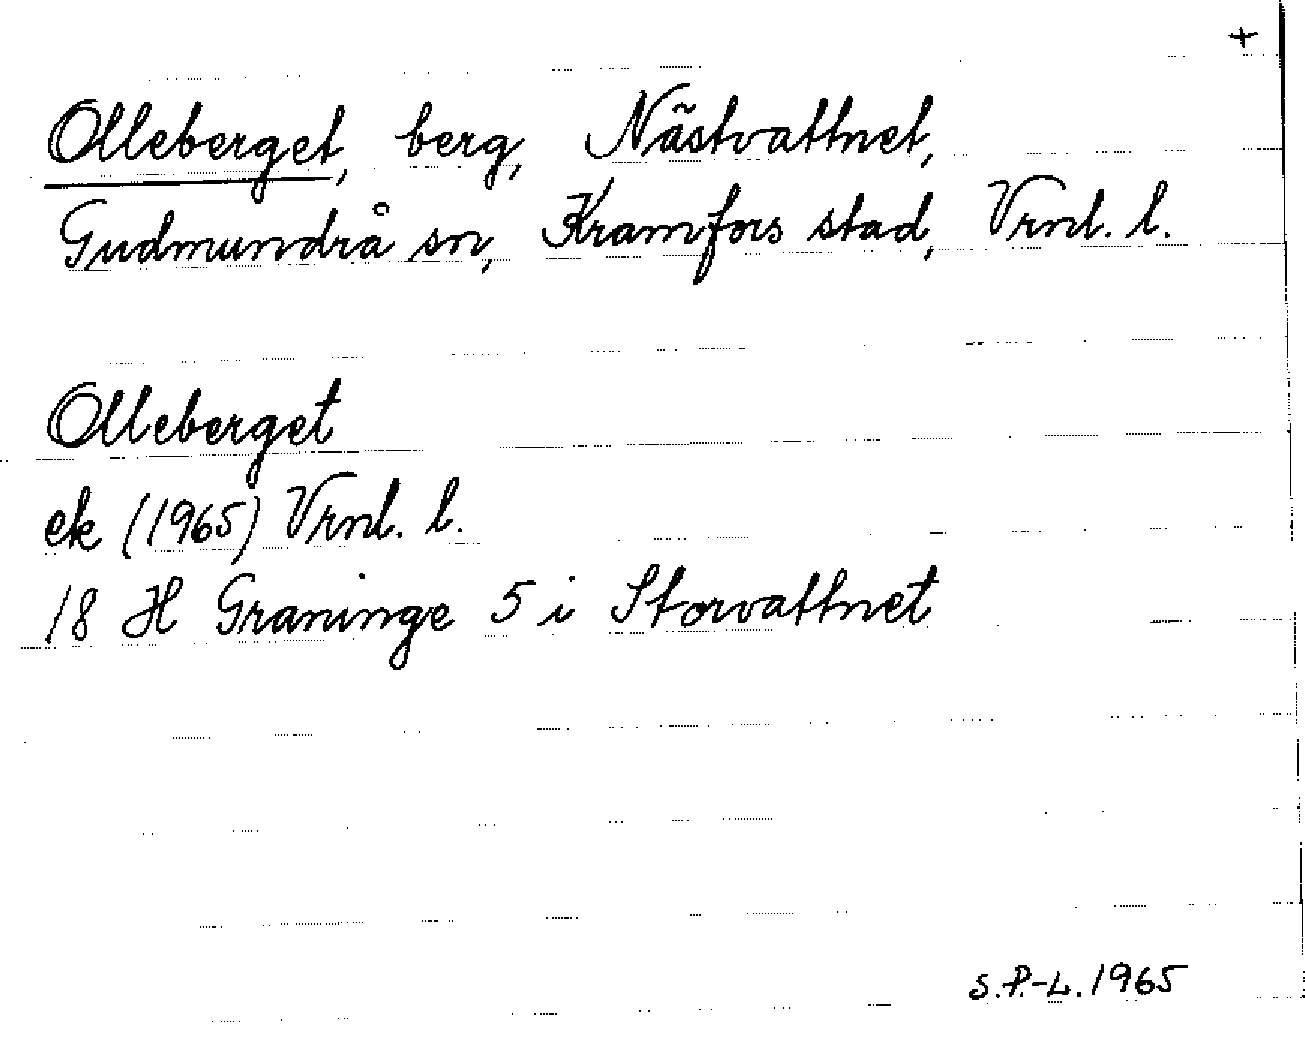 +
Olleberget, berg, Nästvattnet,
Gudmundrå sn, Kramfors stad, Vrnl. l.
Olleberget
ek (1965) Vrnl. l.
18 H Graninge 5 i Storvattnet
S.P.-L. 1965